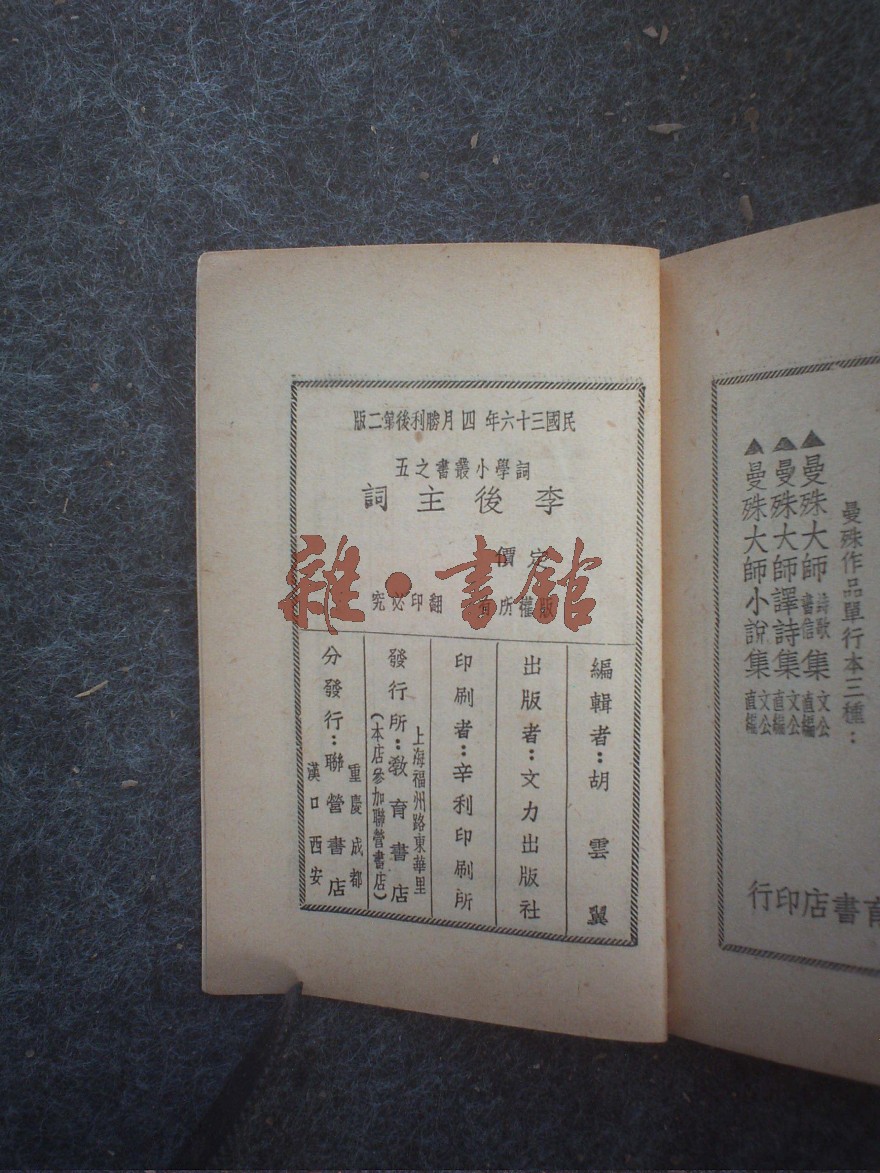 民國三十六年四月勝利後第二版
詞學小叢書之五
李後主詞
定價
版權所有 翻印必究
編輯者：胡雲翼
出版者：文力出版社
印刷者：辛利印刷所
上海福州路東華里
發行所：教育書店
(本店參加聯營書店)
重慶成都
分發行：聯營書店
漢口西安
曼殊作品單行本三種：
▲曼殊大師詩歌書信集 文公直編
▲曼殊大師譯詩集 文公直編
▲曼殊大師小說集 文公直編
育書店印行
雜·書館